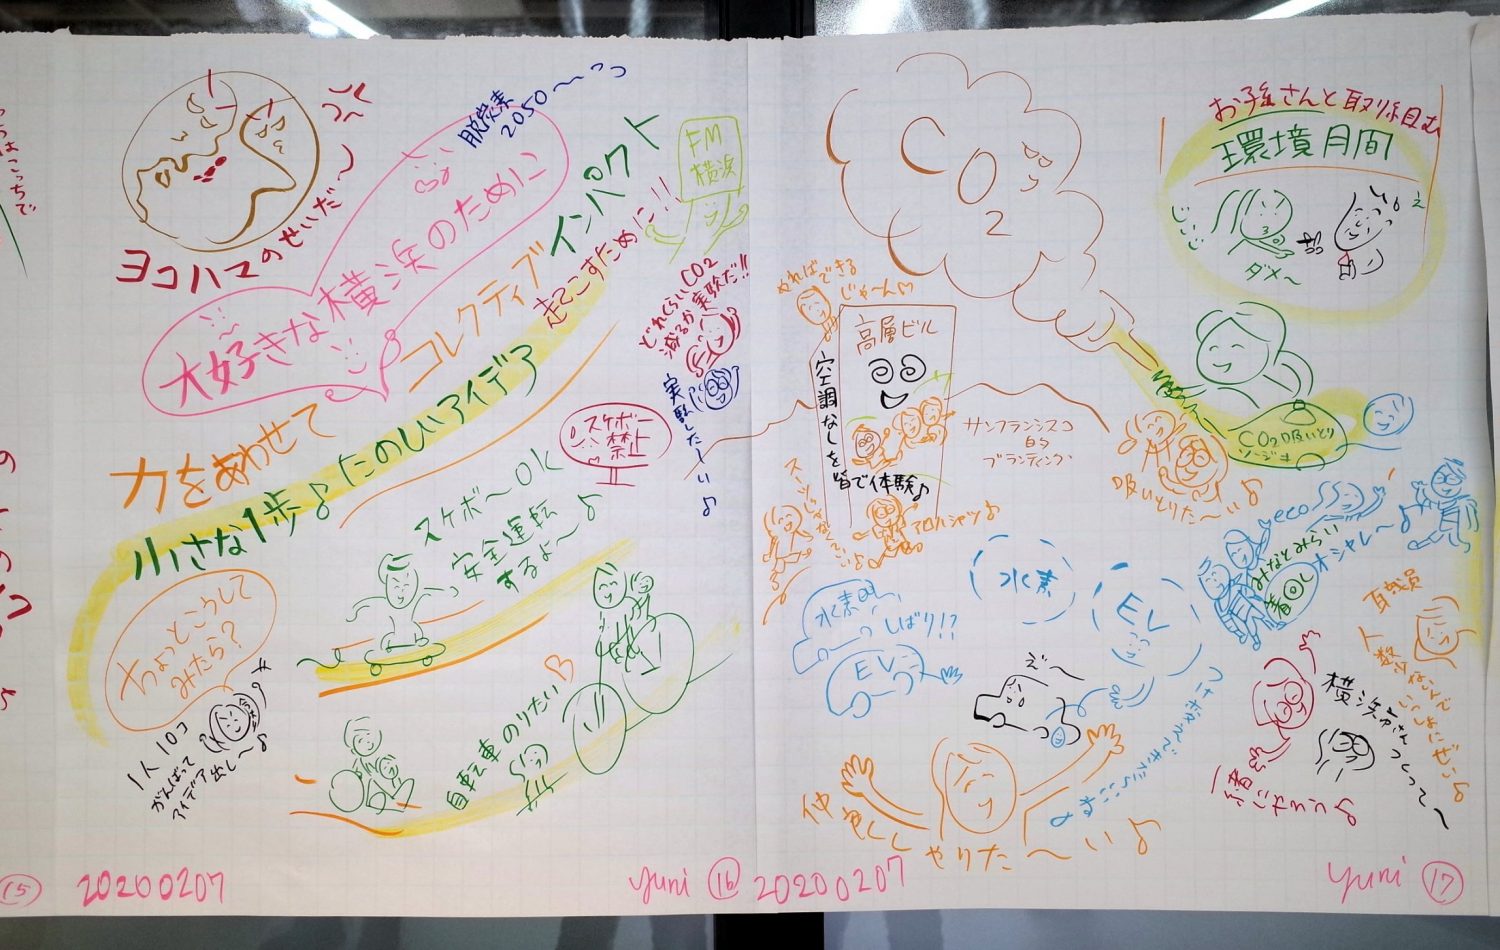 ヨコハマのせいだ〜
脱炭素
2050〜
大好きな横浜のために
コレクティブインパクト
走てこすために!!
FM
横浜
力をあわせて
小さな1歩♪たのしいアイデア
どれくらいCO2
減るか実験だ!!
実験したーい♪
スケボー
禁止
スケボーOK
安全運転
するよ〜♪
ちょっとこうして
みたら?
1人10コ
がんばって
アイデア出し〜♪
自転車のりたい
15
20200207
yuni 16
CO2
お子さんと取り組む
環境月間
ダメ〜
え
やればできる
じゃーん♡
高層ビル
空調なしを
皆で体験♪
スーツじゃなくていいよ
アロハシャツ♪
サンフランシスコ
的
ブランディング
CO2吸いとり
ソージキ
吸いとりた〜い♪
eco
みなとみらい
オシャレ〜♪
水素
EV
水素
しばり!?
EV
え〜
仲良く
やりた〜い♪
職員
人数少ないんで
いっしょにぜひ♪
横浜市さん
つくって〜
20200207
yuni 17